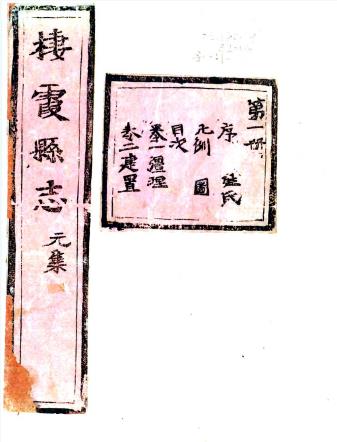 棲霞縣志
元集
第一冊
序 姓氏
凡例 圖
目次
卷一疆理
卷二建置